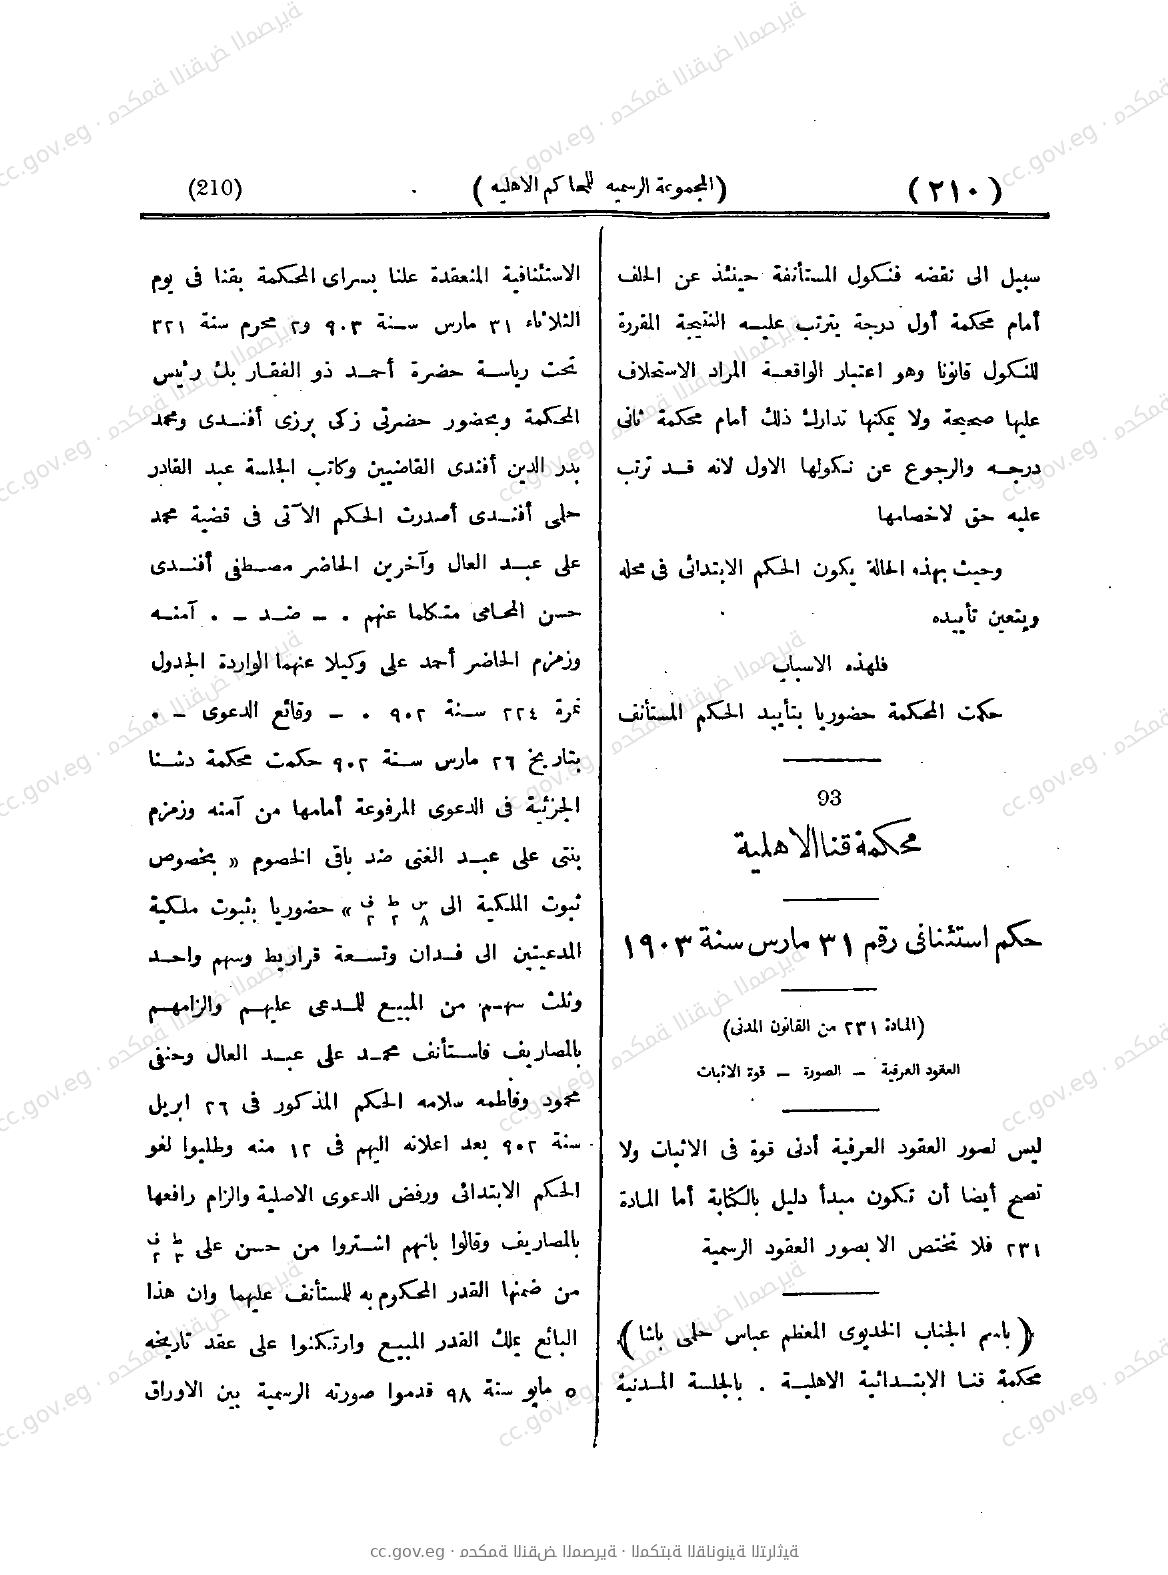 (٢١٠)
(المجموعة الرسميه للمحاكم الاهليه)
(210)
سبيل الى نقضه فنكول المستأنفة حينئذ عن الحلف
أمام محكمة أول درجة يترتب عليه النتيجة المقررة
للنكول قانونا وهو اعتبار الواقعة المراد الاستحلاف
عليها صحيحة ولا يمكنها تدارك ذلك أمام محكمة ثانى
درجه والرجوع عن نكولها الاول لانه قد ترتب
عليه حق لاخصامها
وحيث بهذه الحالة يكون الحكم الابتدائى فى محله
ويتعين تأييده
فلهذه الاسباب
حكمت المحكمة حضوريا بتأييد الحكم المستأنف
93
محكمة قنا الاهلية
حكم استئنافى رقم ٣١ مارس سنة ١٩٠٣
(المادة ٢٣١ من القانون المدنى)
العقود العرفية – الصورة – قوة الاثبات
ليس لصور العقود العرفية أدنى قوة فى الاثبات ولا
تصح أيضا أن تكون مبدأ دليل بالكتابة أما المادة
٢٣١ فلا تختص الا بصور العقود الرسمية
(باسم الجناب الخديوى المعظم عباس حلمى باشا)
محكمة قنا الابتدائية الاهلية . بالجلسة المدنية
الاستئنافية المنعقدة علنا بسراى المحكمة بقنا فى يوم
الثلاثاء ٣١ مارس سنة ٩٠٣ و٢ محرم سنة ٣٢١
تحت رياسة حضرة أحمد ذو الفقار بك رئيس
المحكمة وبحضور حضرتى زكى برزى أفندى ومحمد
بدر الدين أفندى القاضيين وكاتب الجلسة عبد القادر
حلمى أفندى أصدرت الحكم الآتى فى قضية محمد
على عبد العال وآخرين الحاضر مصطفى أفندى
حسن المحامى متكلما عنهم . – ضد – . آمنه
وزمزم الحاضر أحمد على وكيلا عنهما الواردة الجدول
نمرة ٢٢٤ سنة ٩٠٢ . – وقائع الدعوى – .
بتاريخ ٢٦ مارس سنة ٩٠٢ حكمت محكمة دشنا
الجزئية فى الدعوى المرفوعة أمامها من آمنه وزمزم
بنتى على عبد الغنى ضد باقى الخصوم « بخصوص
ثبوت الملكية الى س ٨ ط ٢ ف ٢ » حضوريا بثبوت ملكية
المدعيتين الى فدان وتسعة قراريط وسهم واحد
وثلث سهم من المبيع للمدعى عليهم والزامهم
بالمصاريف فاستأنف محمد على عبد العال وحنفى
محمود وفاطمه سلامه الحكم المذكور فى ٢٦ ابريل
سنة ٩٠٢ بعد اعلانه اليهم فى ١٢ منه وطلبوا لغو
الحكم الابتدائى ورفض الدعوى الاصلية والزام رافعها
بالمصاريف وقالوا بانهم اشتروا من حسن على ط ٣ ف ٢
من ضمنها القدر المحكوم به للمستأنف عليهما وان هذا
البائع يملك القدر المبيع وارتكنوا على عقد تاريخه
٥ مايو سنة ٩٨ قدموا صورته الرسمية بين الاوراق
cc.gov.eg · محكمة النقض المصرية · المكتبة القانونية التراثية